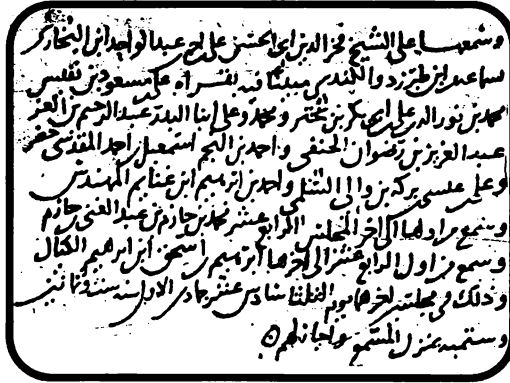 وسمعها على الشيخ فخر الدين ابي الحسن علي بن احمد بن عبد الواحد ابن البخاري
بسماعه من ابن طبرزد والكندي فيه بقراءة علي بن مسعود بن نفيس
محمد بن نور الدين علي بن ابي بكر بن بحتر ومحمد وعلي ابنا البدر عبد الرحيم بن العز
عبد العزيز بن رضوان الحنفي واحمد بن النجم اسمعيل بن احمد المقدسي حضر
وعلى عيسى بركة بن والي واحمد بن ابرهيم ابن غنايم المهندس
وسمع من اولها الى اخر المجلس الرابع عشر محمد بن حازم بن عبد الغني بن حازم
وسمع من اول الرابع عشر الى اخرها ابرهيم بن اسحق ابن ابرهيم الكتال
وذلك في مجلس اخرها يوم الثلثا سادس عشر جمادى الاولى سنة ثمانين
وستمية بمنزل المسمع واجاز لهم